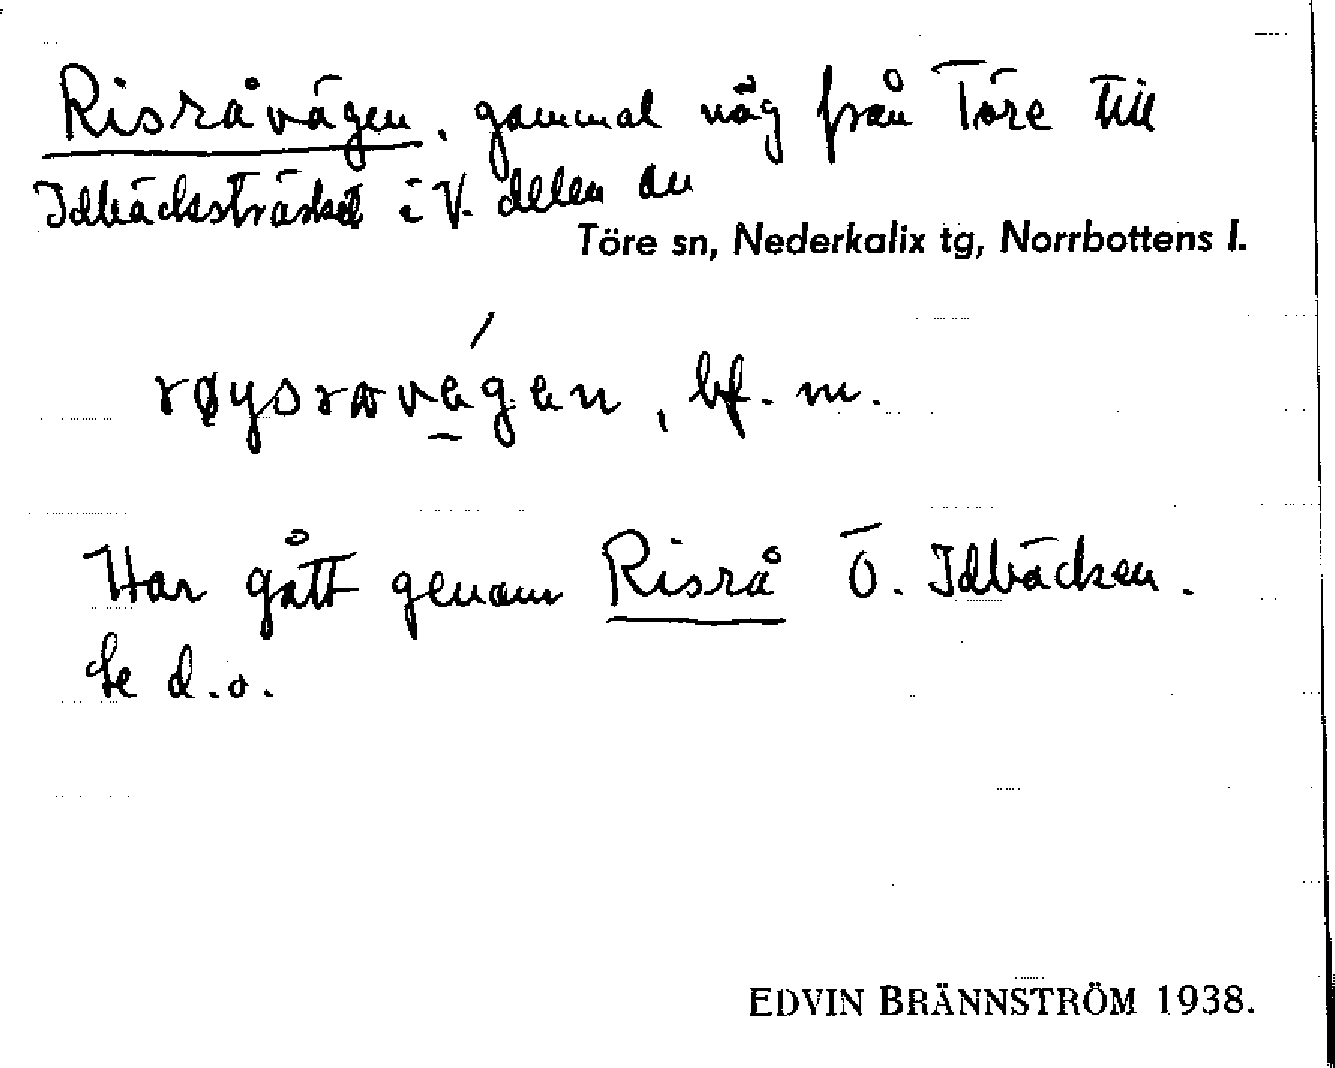 Risråvägen, gammal väg från Töre till
Idbäcksträsket i V. delen av
Töre sn, Nederkalix tg, Norrbottens l.
røysravégen, bf. m.
Har gått genom Risrå Ö. Idbäcken.
Se d.o.
EDVIN BRÄNNSTRÖM 1938.